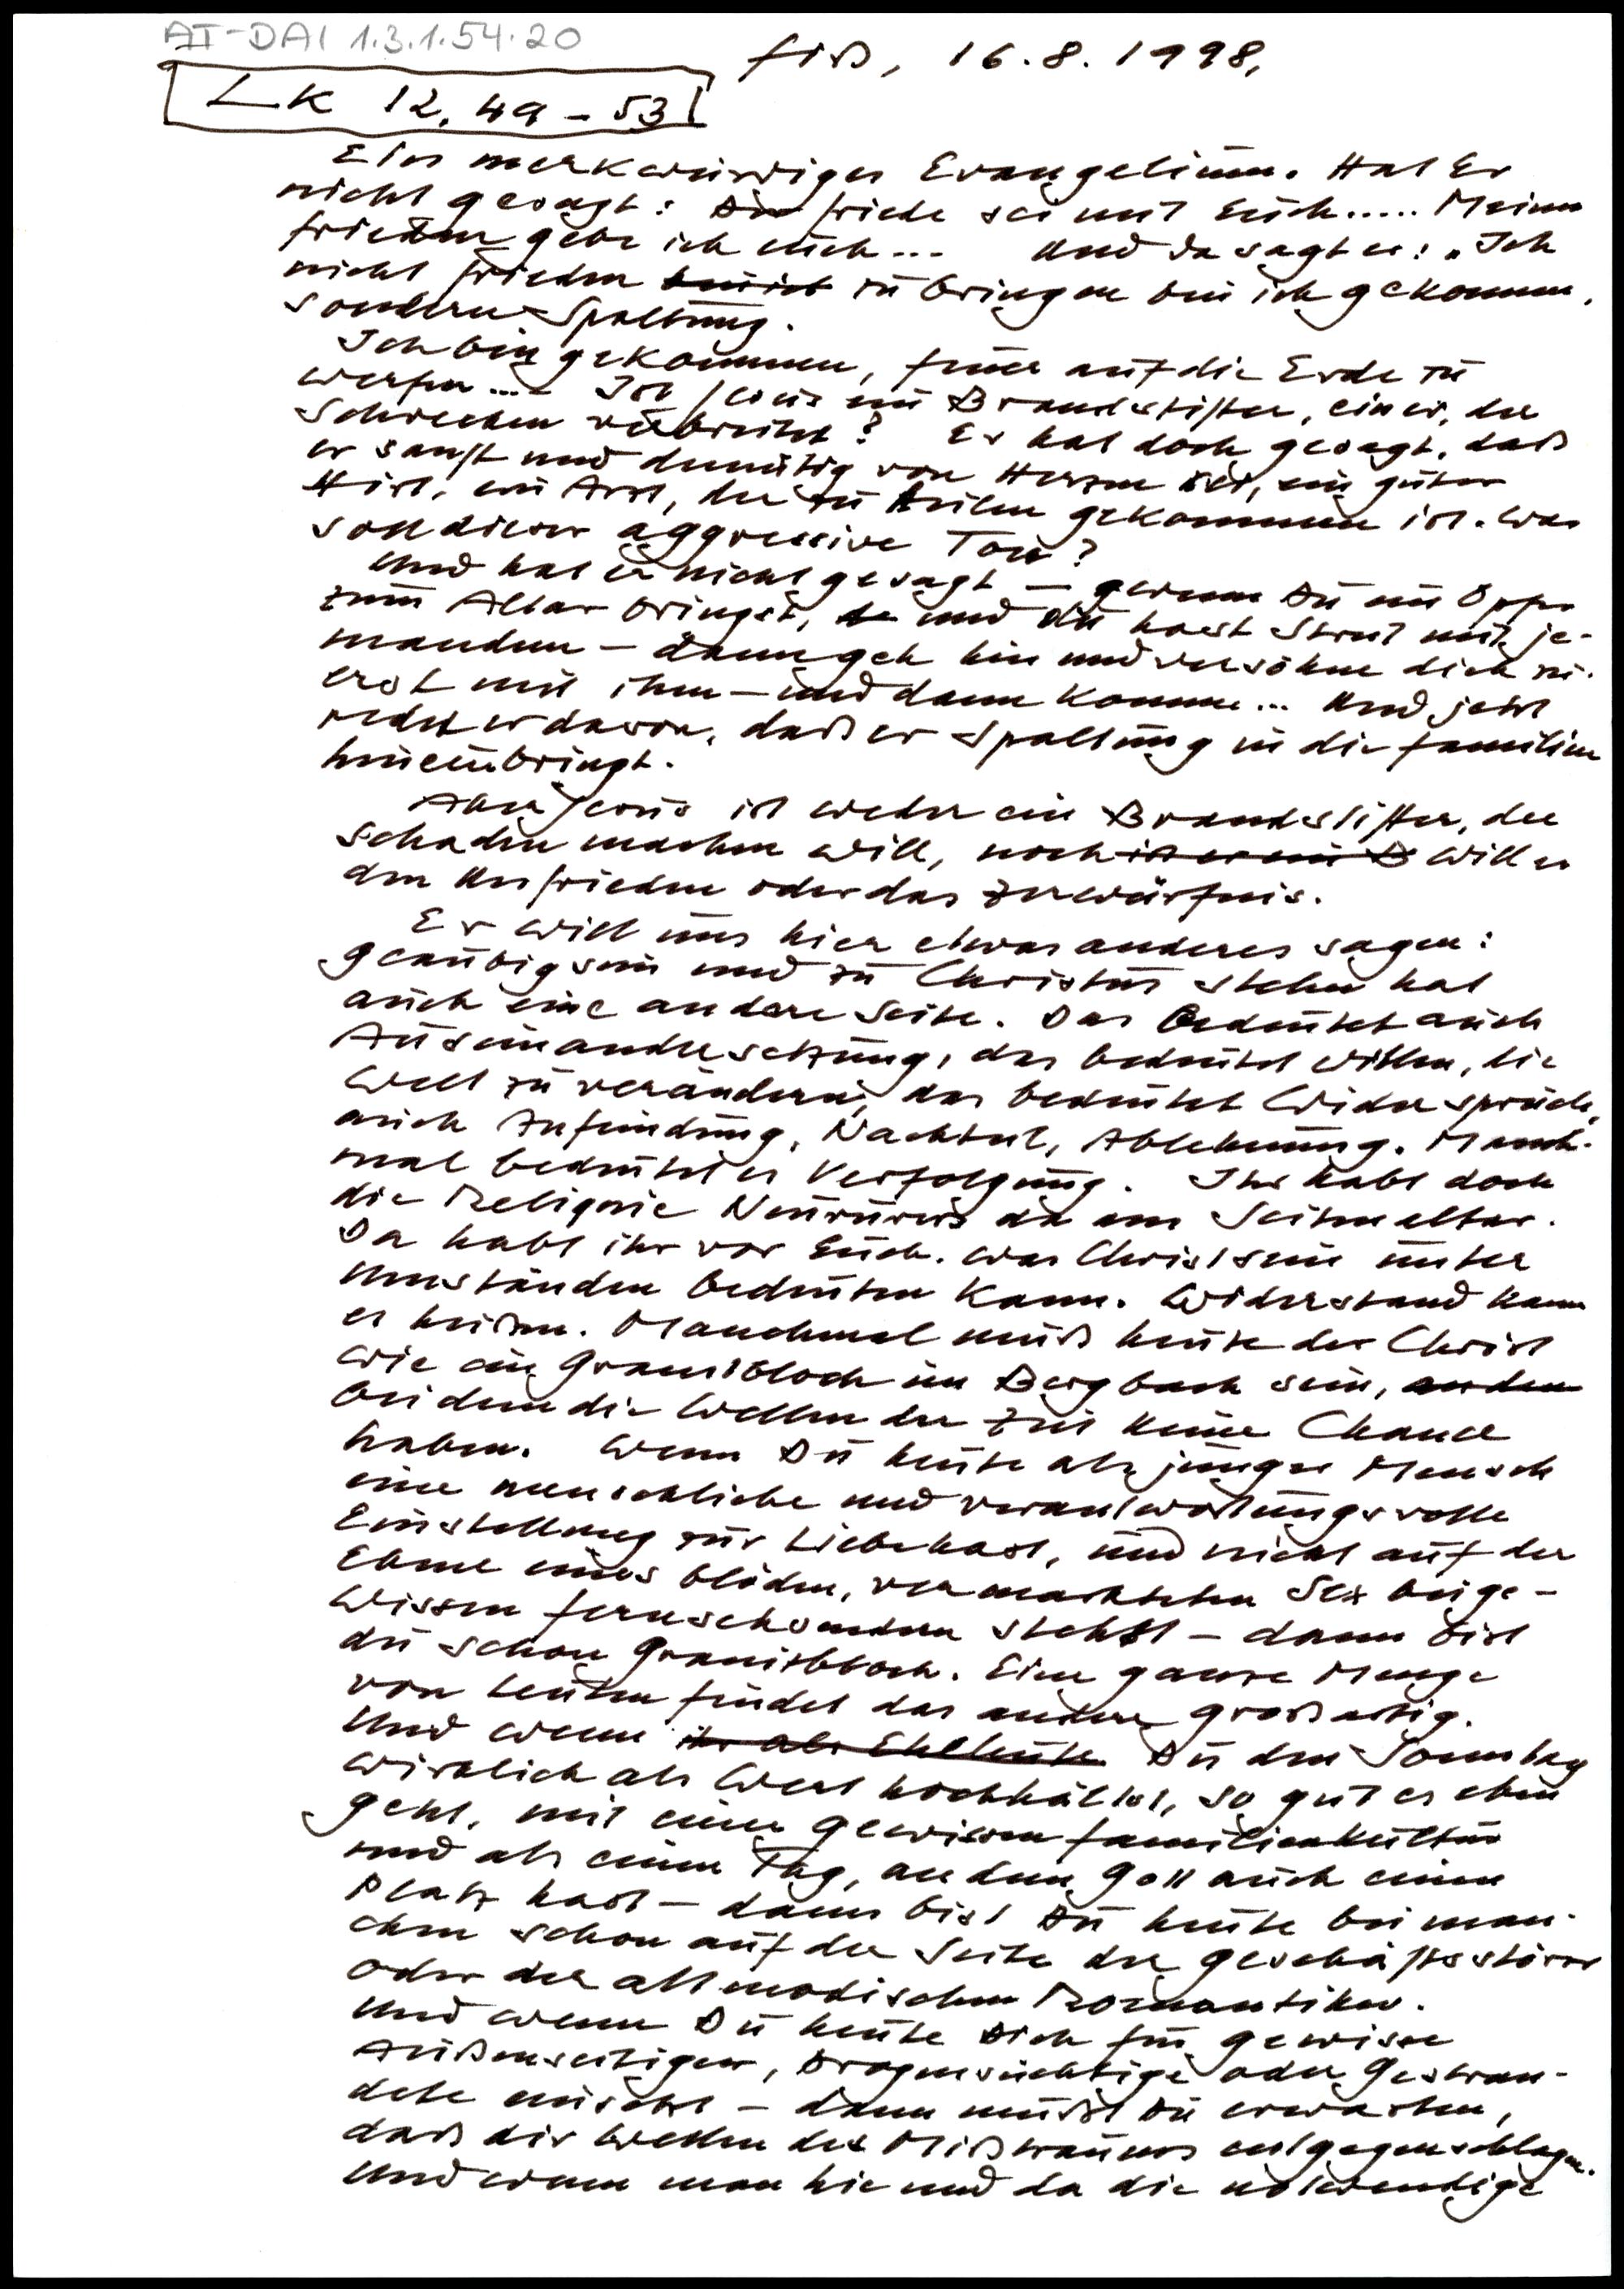 AT-DAI 1.3.1.54.20
Fiß, 16.8.1998,
LK 12, 49-53
Ein merkwürdiges Evangelium. Hat Er
nicht gesagt: Friede sei mit Euch..... Meinen
Frieden gebe ich euch... Und da sagt er: „Ich
nicht Frieden zu bringen bin ich gekommen,
sondern Spaltung.
Ich bin gekommen, Feuer auf die Erde zu
werfen.... Ist Jesus ein Brandstifter, einer, der
Schrecken verbreitet? Er hat doch gesagt, daß
er sanft und demütig von Herzen sei, ein guter
Hirt, ein Arzt, der zu heilen gekommen ist. Was
soll dieser aggressive Ton?
Und hat er nicht gesagt – wenn Du ein Opfer
zum Altar bringst, und du hast Streit mit je-
mandem – dann geh hin und versöhne dich zu-
erst mit ihm – und dann komme... Und jetzt
redet er davon, daß er Spaltung in die Familien
hineinbringt.
Aber Jesus ist weder ein Brandstifter, der
Schaden machen will, noch will er
den Unfrieden oder das Zerwürfnis.
Er will uns hier etwas anderes sagen:
Gläubig sein und zu Christus stehen hat
auch eine andere Seite. Das bedeutet auch
Auseinandersetzung, das bedeutet Willen, die
Welt zu verändern, das bedeutet Widerspruch,
auch Anfeindung, Nachteil, Ablehnung. Manch-
mal bedeutet es Verfolgung. Ihr habt doch
die Reliquie Neururers da am Seitenaltar.
Da habt ihr vor Euch, was Christsein unter
Umständen bedeuten kann. Widerstand kann
es heißen. Manchmal muß heute der Christ
wie ein Granitblock im Bergbach sein,
bei dem die Wellen der Zeit keine Chance
haben. Wenn Du heute als junger Mensch
eine menschliche und verantwortungsvolle
Einstellung zur Liebe hast, und nicht auf der
Ebene eines blöden, vermarkteten Sex bei ge-
wissen Fernsehsendern stehst – dann bist
du schon Granitblock. Eine ganze Menge
von Leuten findet das andere großartig.
Und wenn Du den Sonntag
wirklich als Wert hochhältst, so gut es eben
geht, mit einer gewissen Familienkultur
und als einen Tag, an dem Gott auch einen
Platz hast – dann bist Du heute bei man-
chen schon auf der Seite der Geschäftsstörer
oder der altmodischen Romantiker.
Und wenn Du heute Dich für gewisse
Außenseitigen, Drogensüchtige oder Gestran-
dete einsetzt – dann mußt Du erwarten,
daß dir Wellen des Mißtrauens entgegenschlagen.
Und wenn man hie und da die notwendige